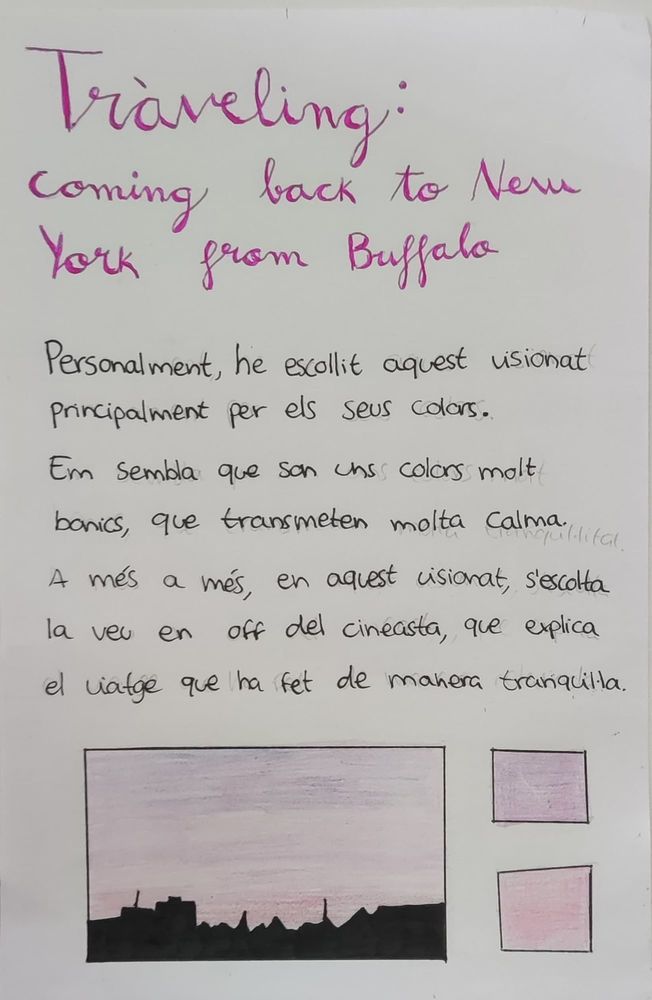 Tràveling:
coming back to New
York from Buffalo
Personalment, he escollit aquest visionat
principalment per els seus colors.
Em sembla que son uns colors molt
bonics, que transmeten molta calma.
tranquil·litat.
A més a més, en aquest visionat, s'escolta
la veu en off del cineasta, que explica
el viatge que ha fet de manera tranquil·la.